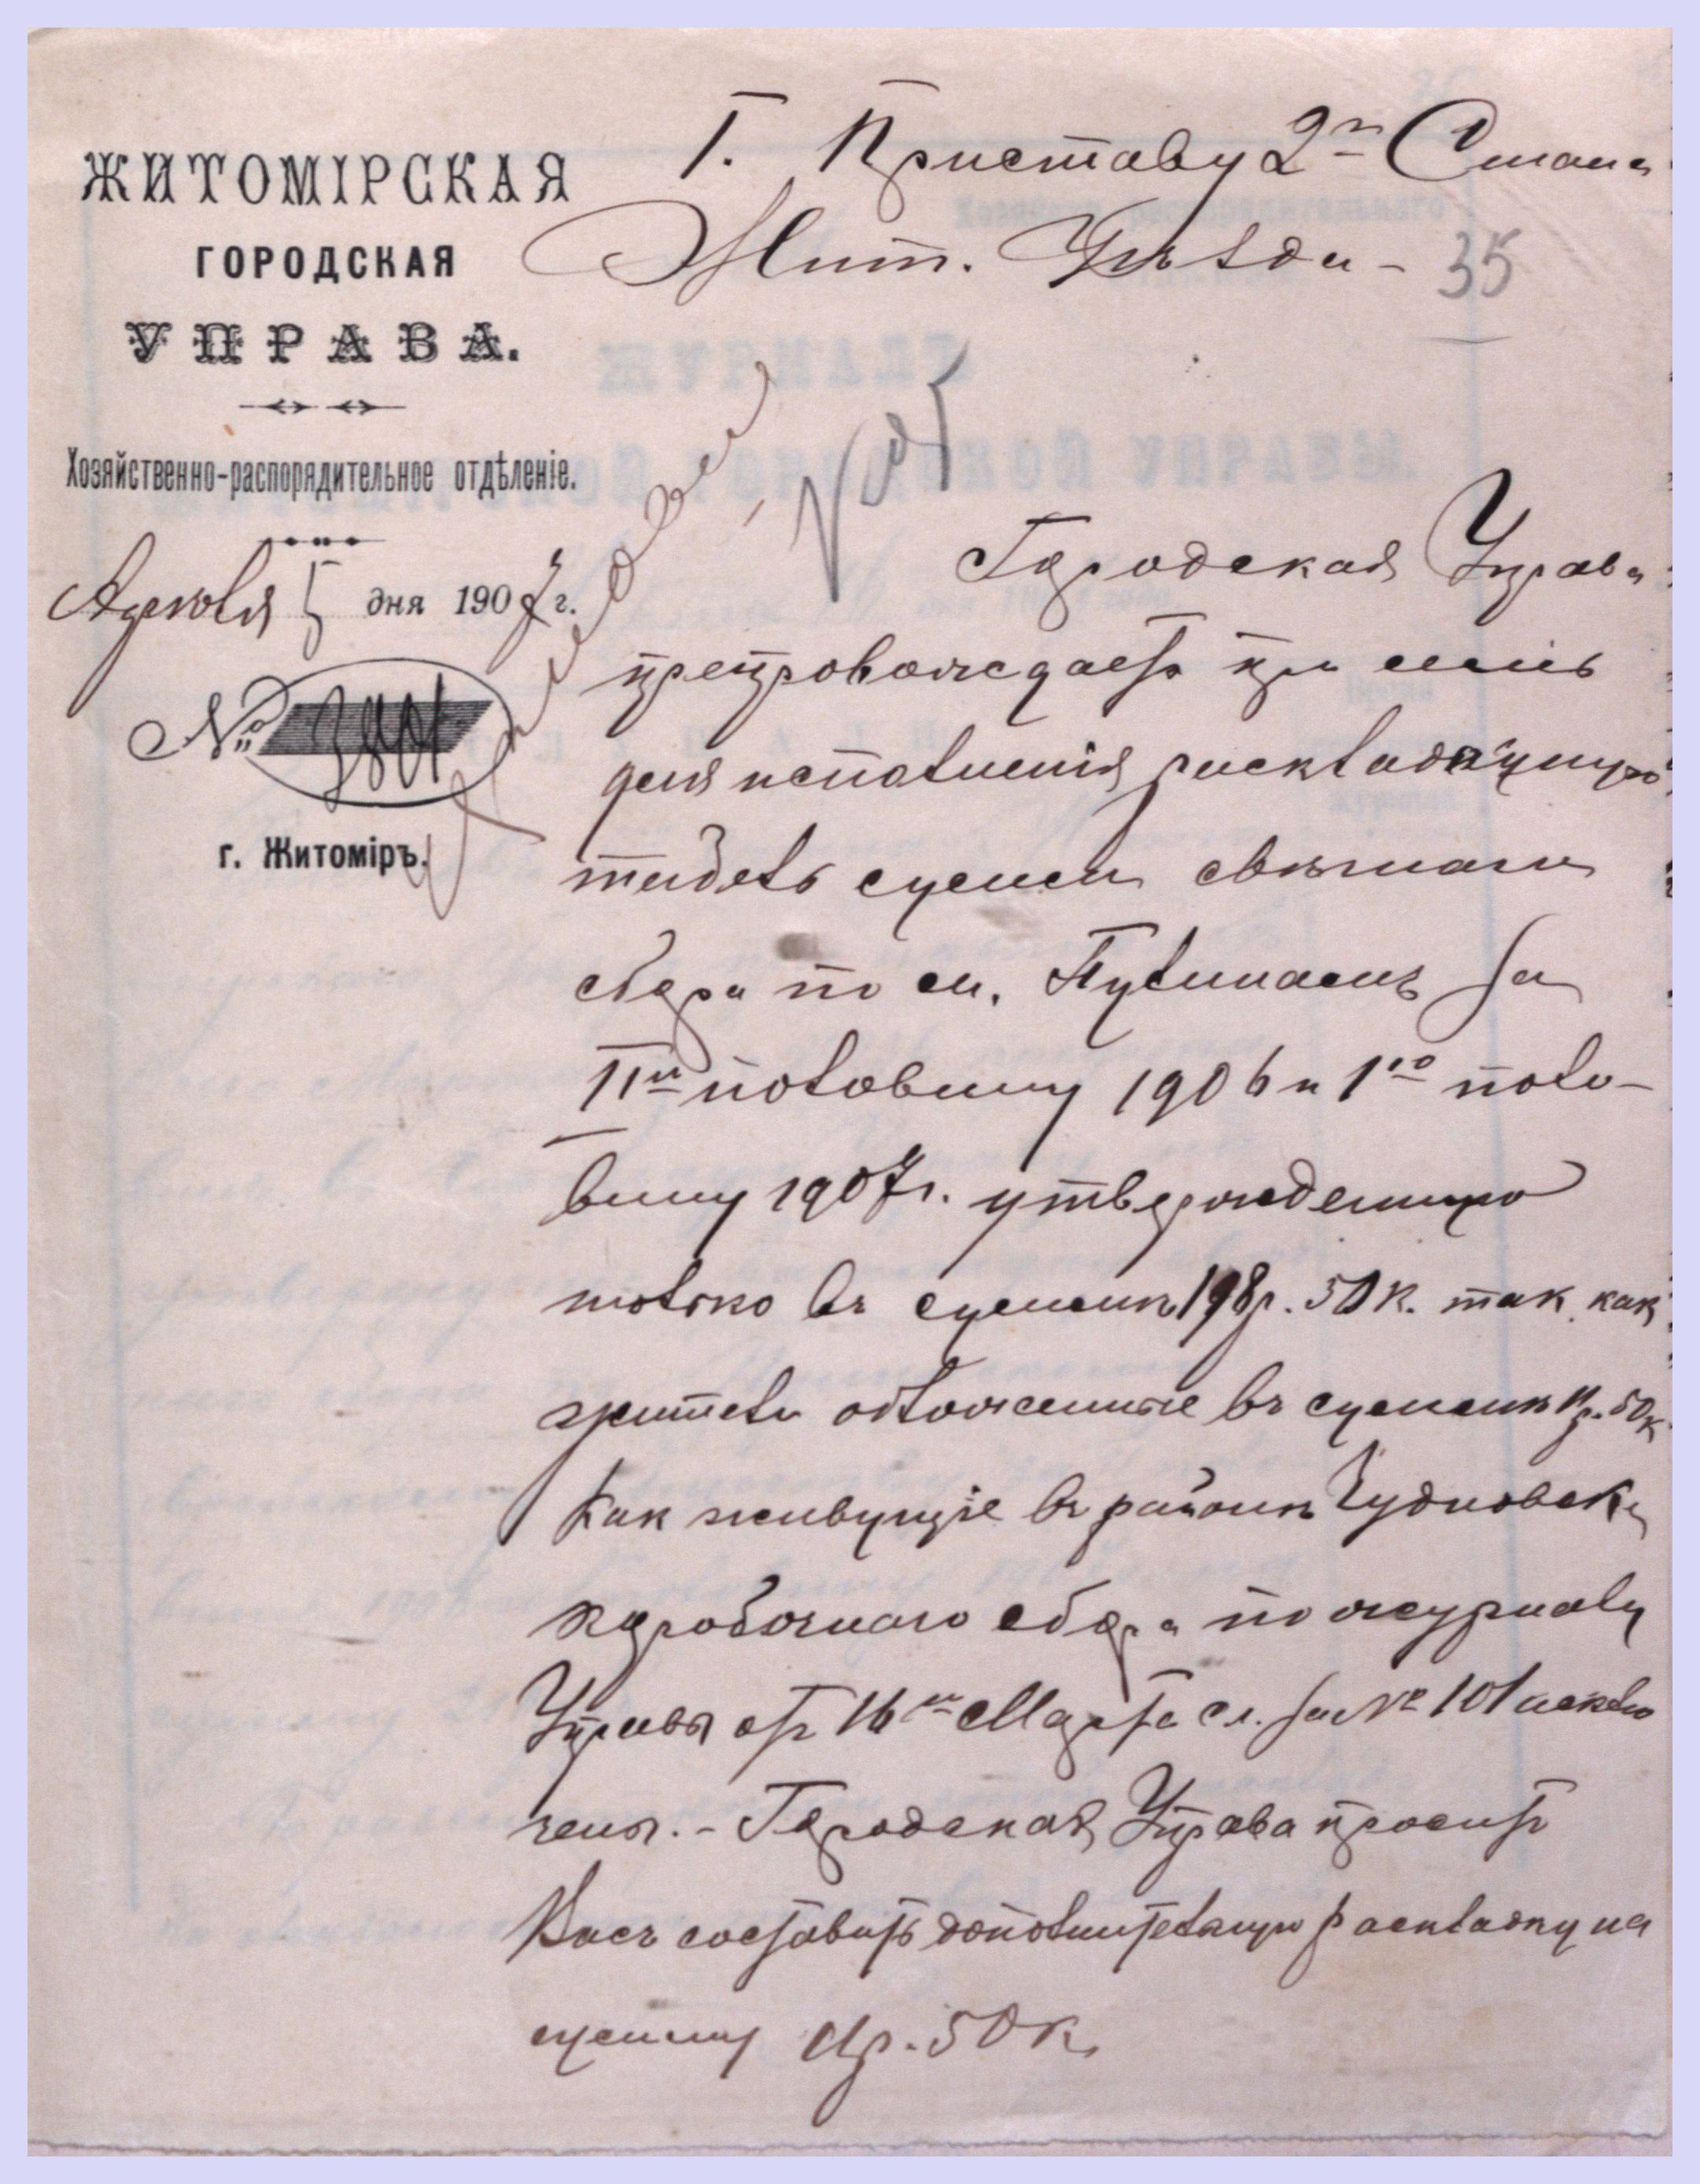 ЖИТОМІРСКАЯ
ГОРОДСКАЯ
УПРАВА.
Хозяйственно-распорядительное отдѣленіе.
Апреля 5 дня 1907 г.
№ 3801
г. Житоміръ.
Г. Приставу 2го Стана
Жит. Уѣзда -
35
Городская Управа
препровождаетъ при семъ
для исполненія раскладочную
табель суммы свѣчнаго
сбора по м. Пулинамъ за
IIю половину 1906 и 1ю поло-
вину 1907 г. утвержденную
только въ суммѣ 198 р. 50 к. так как
жители обложенные въ суммѣ 11 р. 50 к
как живущіе въ районѣ Чудновск.
коробочнаго сбора по журналу
Управы отъ 16го Марта с.г. за № 101 исклю
чены. - Городская Управа проситъ
Васъ составить дополнительную раскладку на
сумму 11 р. 50 к.